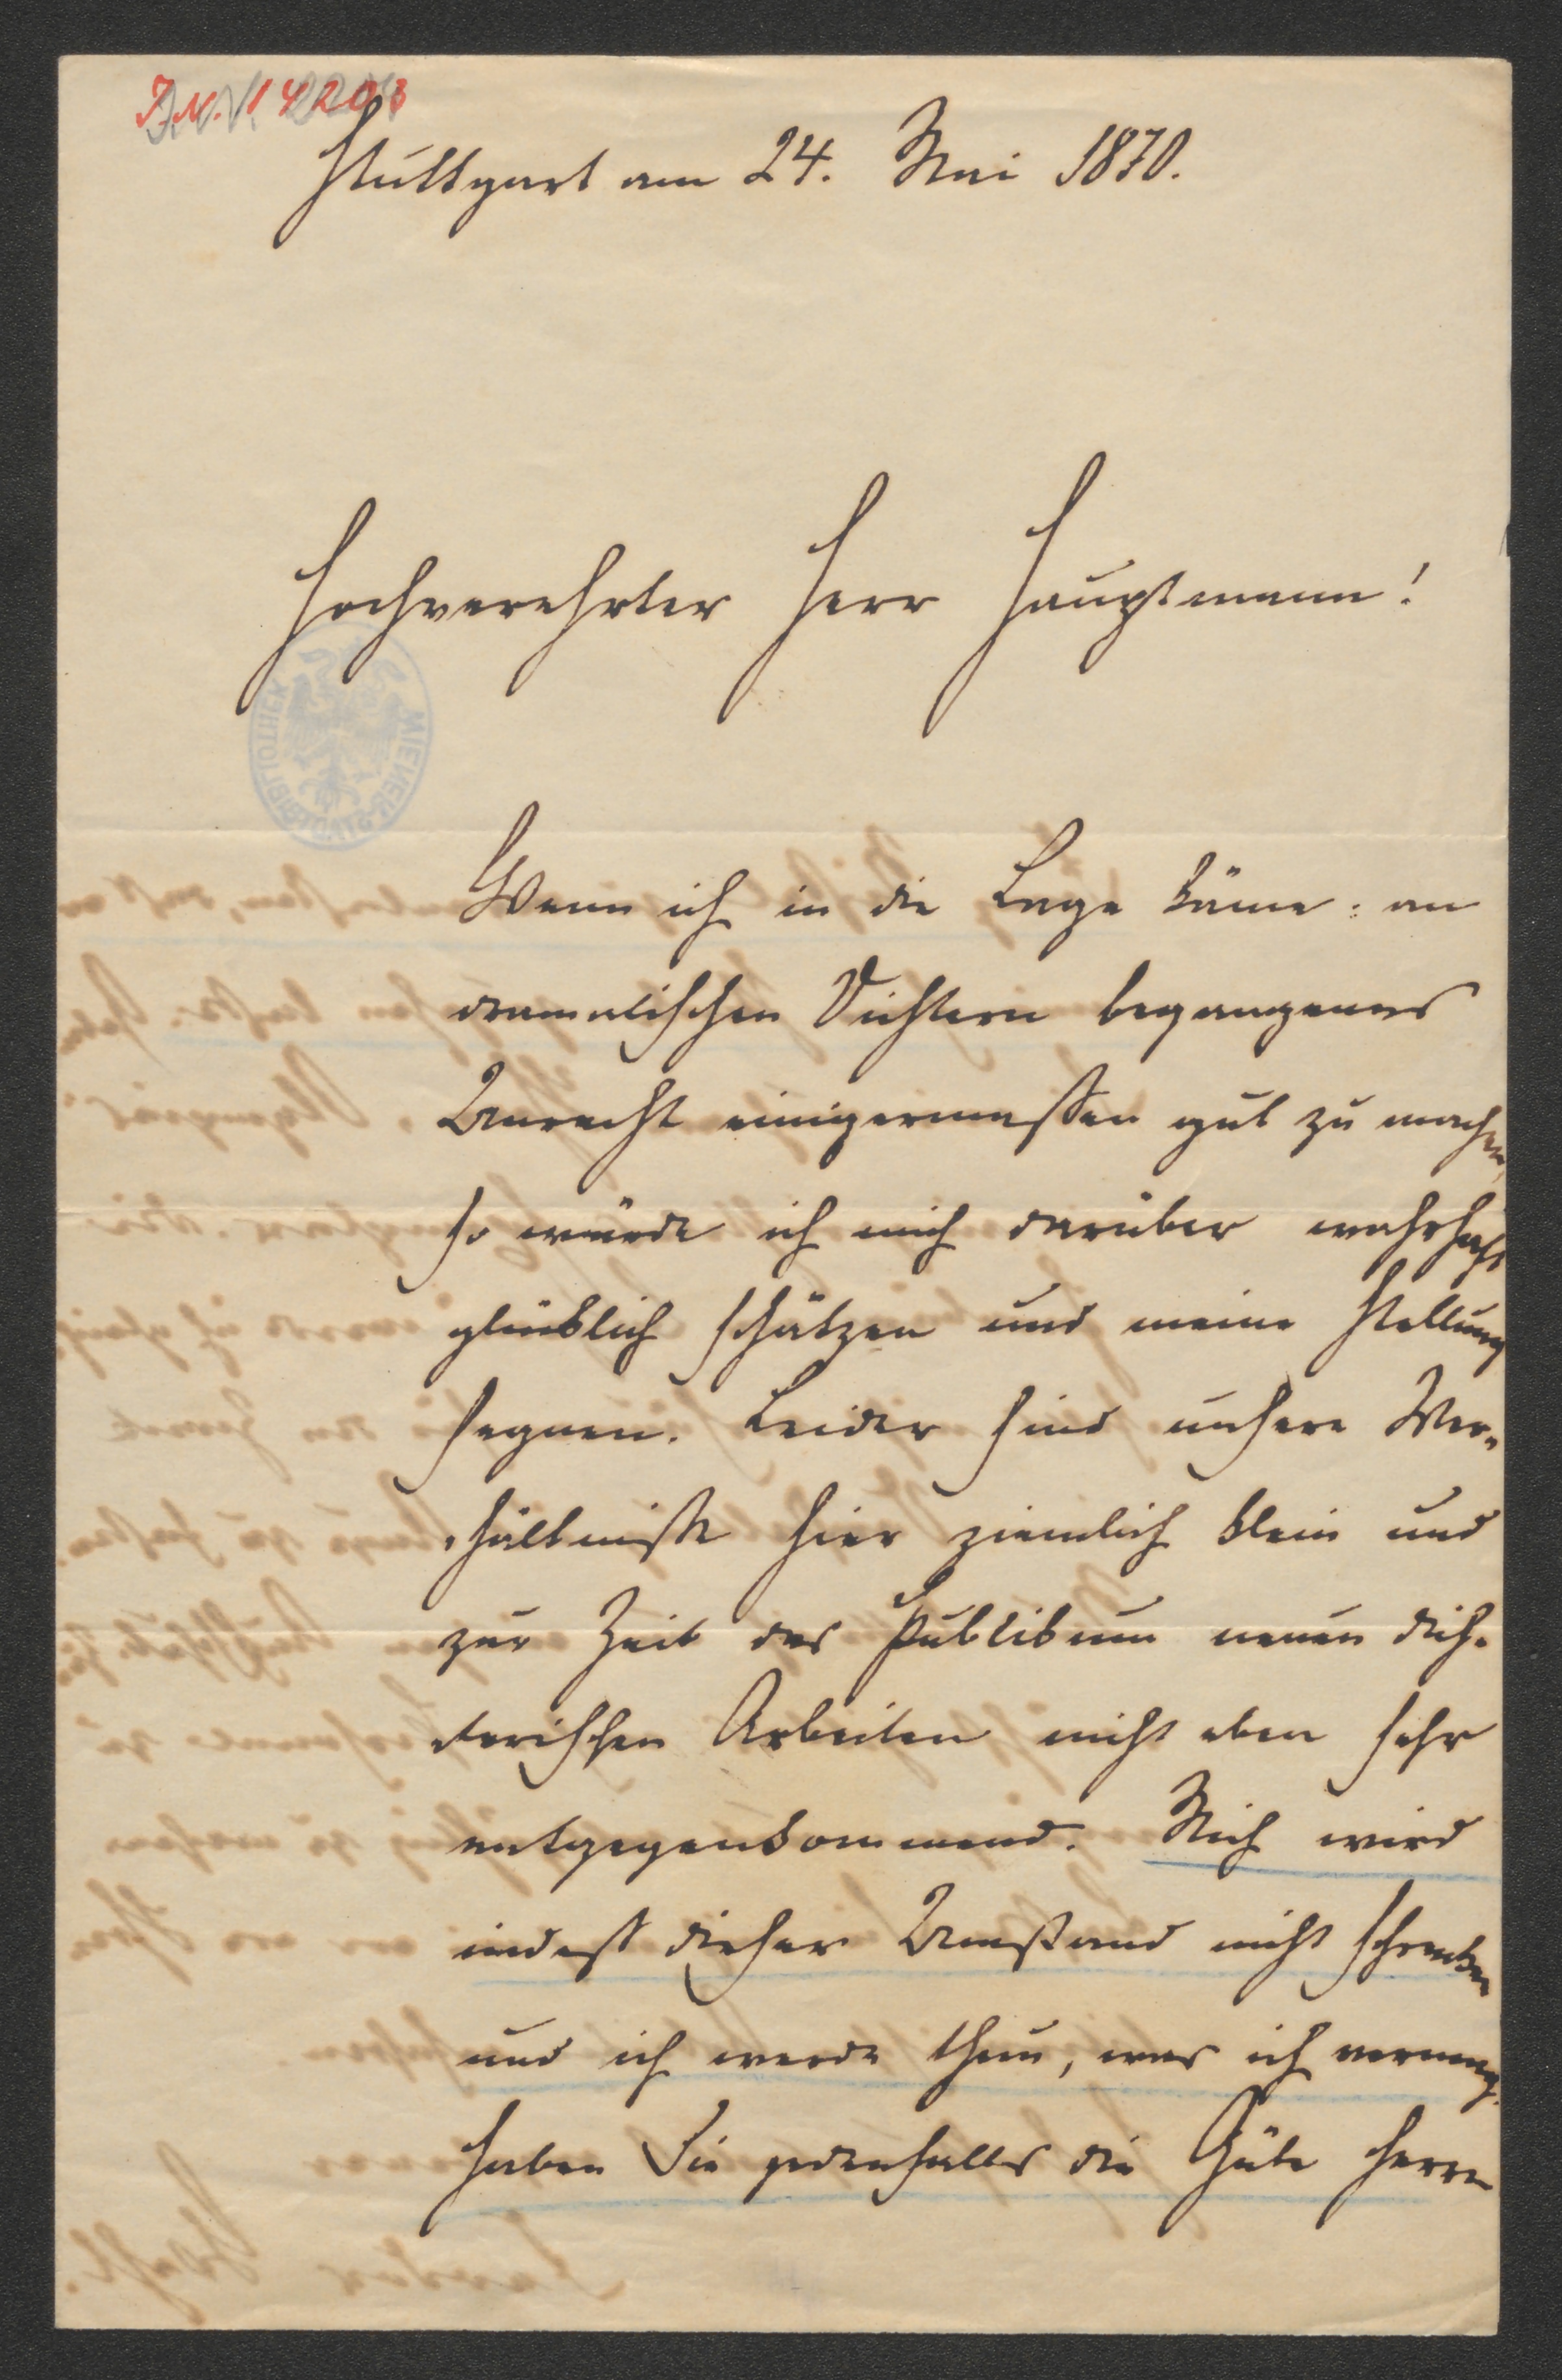 J.N. 142203
Stuttgart am 24. Mai 1870.
Hochverehrter Herr Hauptmann!
Wenn ich in die Lage käme: an
dramatischen Dichtern begangenes
Unrecht einigermassen gut zu machen,
so würde ich mich darüber wahrhaft
glücklich schätzen und meine Stellung
segnen. Leider sind unsere Ver-
hältnisse hier ziemlich klein und
zur Zeit das Publikum neuen dich-
terischen Arbeiten nicht eben sehr
entgegenkommend. Mich wird
indess dieser Umstand nicht schrecken
und ich werde thun, was ich vermag.
Haben Sie jedenfalls die Güte Herrn
WIENER STADTBIBLIOTHEK